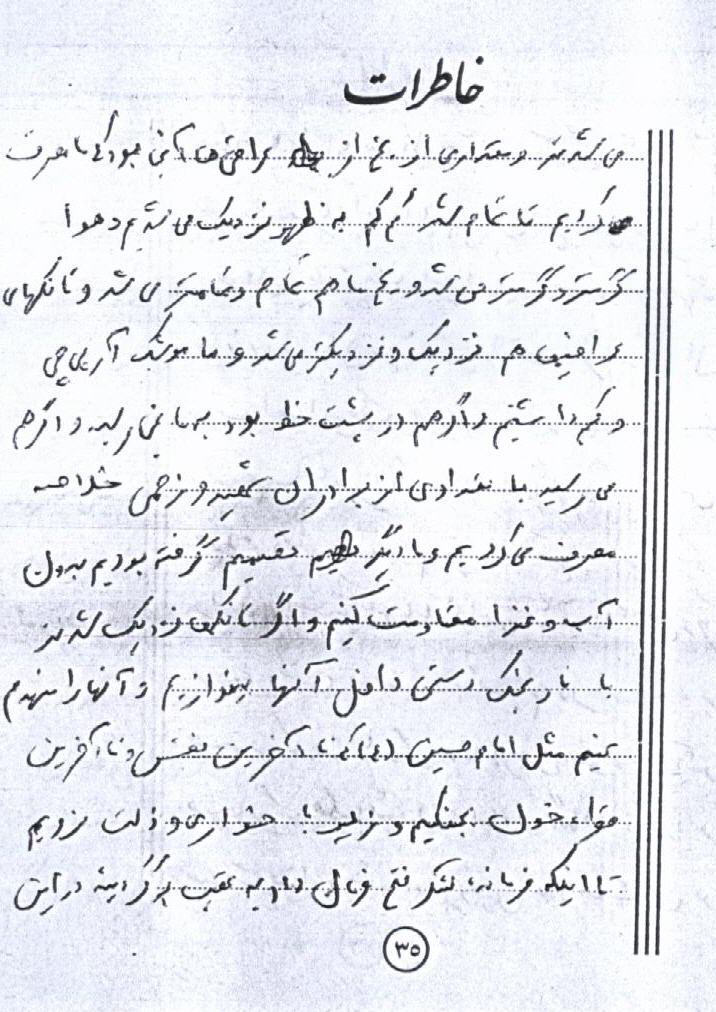 خاطرات
می شدند و مقداری از یخ از عراقی های آبی بود که ما صرف
می کردیم تا تمام شد کم کم به ظهر نزدیک می شدیم و هوا
گرمتر و گرمتر می شد و یخ ما هم تمام و تمامتر می شد و تانکهای
عراقیها هم نزدیک و نزدیکتر می شد و ما موشک آرپی جی
و کم داشتیم و اگر هم در پشت خط بود به ما نمی رسید و اگر هم
می رسید با تعدادی از برادران شهید و زخمی خلاصه
مصرف می کردیم و ما دیگر تصمیم گرفته بودیم بدون
آب و غذا مقاومت کنیم و اگر تانکها نزدیک شدند
با نارنجک دستی داخل آنها بیندازیم و آنها را منهدم
کنیم مثل امام حسین (ع) که تا آخرین نفس و تا آخرین
قطره خون بجنگیم و زیر بار خواری و ذلت نرویم
تا اینکه فرمانده لشکر فتح فرمان داد به عقب برگردید در این
۳۵